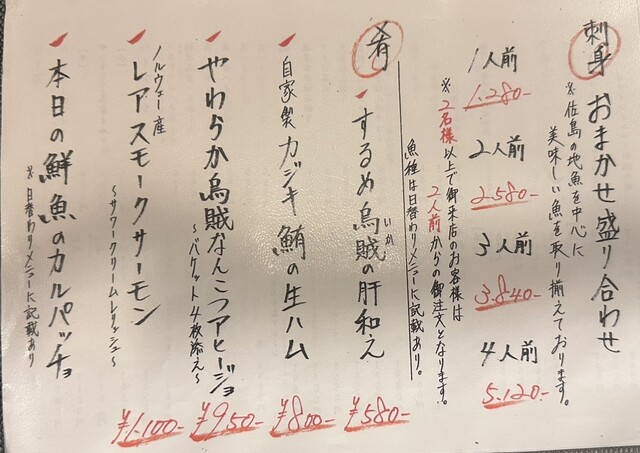 刺身 おまかせ盛り合わせ
※佐島の地魚を中心に
美味しい魚を取り揃えております。
1人前 1.280-
2人前 2.580-
3人前 3.840-
4人前 5.120-
※2名様以上で御来店のお客様は
2人前からの御注文となります。
魚種は日替わりメニューに記載あり。
肴
するめ烏賊の肝和え ¥580-
いか
自家製カジキ鮪の生ハム ¥800-
やわらか烏賊なんこつアヒージョ ¥950-
〜バケット4枚添え〜
ノルウェー産
レアスモークサーモン ¥1.100-
〜サワークリームレリッシュ〜
本日の鮮魚のカルパッチョ
※日替わりメニューに記載あり